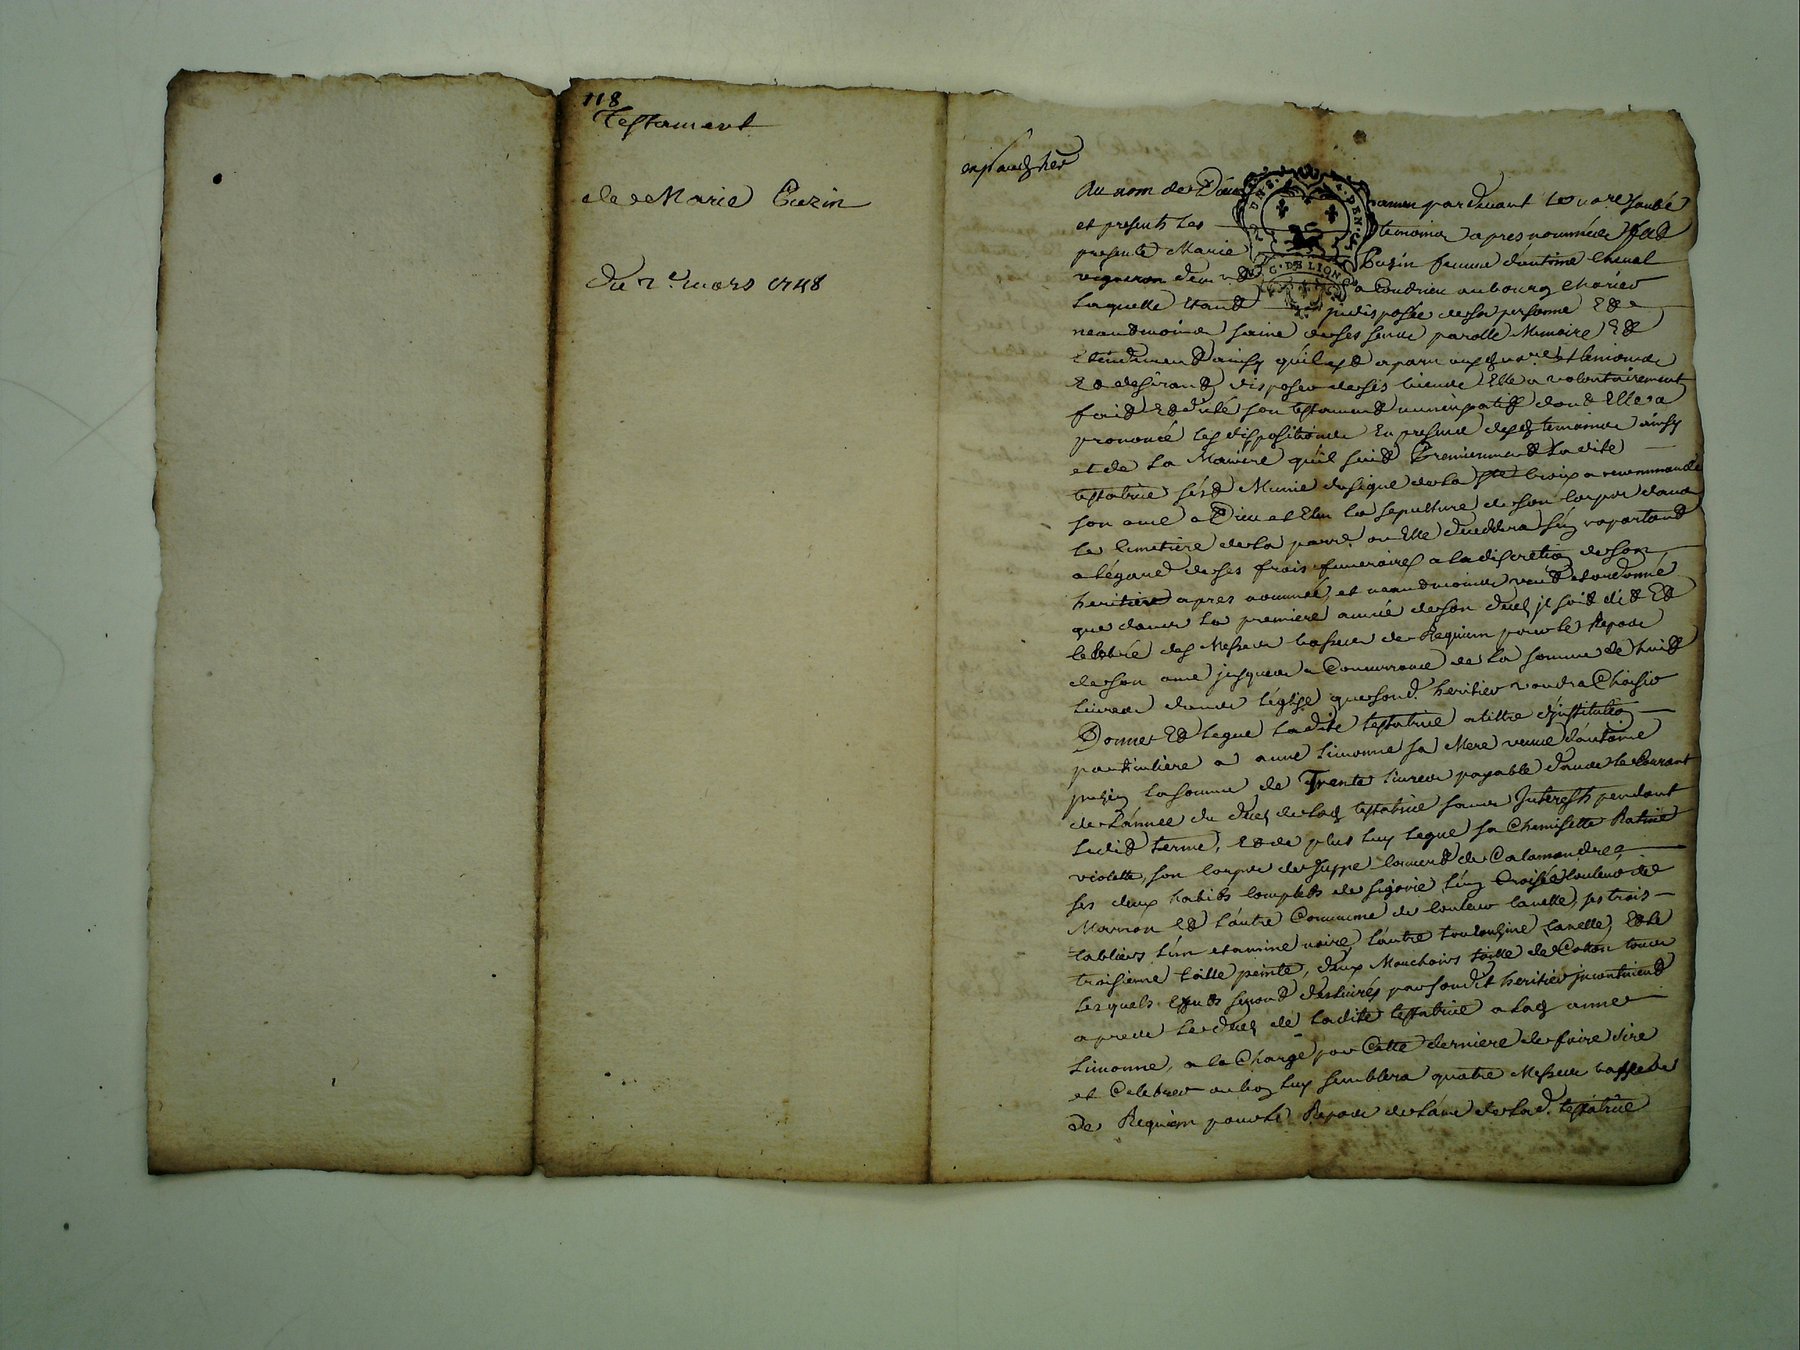 118
Testament
de Marie Cuzin
Du 2e mars 1748
Au nom de Dieu amen pardevant le nore soubé
et presents les temoins apres nommés fut
presente Marie Cuzin femme d'antoine
vigneron dem.t a Condrieu au bourg
Laquelle Etant indisposée de sa personne Et
neantmoins saine de ses sens parolle Memoire Et
Entendement ainsy qu'il est aparu aux d nore et temoins
Et desirant disposer de ses biens Elle a volontairement
fait Et dicté son testament nuncupatif dont Elle a
prononcé les dispositions En presence desd temoins ainsy
et de la Maniere qu'il suit Premierement Ladite
testatrice s'est Munie du signe de la ste Croix a recommandé
son ame a Dieu et Elu la sepulture de son corps dans
le Cimetiere de la parre ou Elle decedera s'en raportant
a l'égard de ses frais funeraires a la discretion de son
heritier apres nommé et neantmoins veut et ordonne
que dans la premiere année de son deces il soit dit Et
celebré des Messes basses de Requiem pour le Repos
de son ame jusques a Concurrance de la somme de huit
Livres dans l'église que sond. heritier voudra Choisir
Donne Et Legue Ladite testatrice a tittre d'jnstitution
particuliere a anne Limonne sa Mere veuve d'antoine
la somme de Trente Livres payable dans le Courant
de L'année du deces de lad testatrice sans Interests pendant
Ledit terme, Et de plus luy Legue sa Chemisette Ratine
violette, son Corps de Juppe de Calamandre
ses deux habits complets de sigovie l'un Croisé Couleur de
Marron Et L'autre Commune de Couleur canelle, ses trois
tabliers l'un etamine noire l'autre canelle, Et le
troisieme toille peinte, deux Mouchoirs toille de Cotton tous
Lesquels Effets seront delivrés par sondit heritier incontinent
apres Le deces de Ladite testatrice a lad anne
Limonne, a la Charge par Cette derniere de faire dire
et Celebrer ou bon luy semblera quatre Messes basses
de Requiem pour le Repos de L'ame de Lad. testatrice